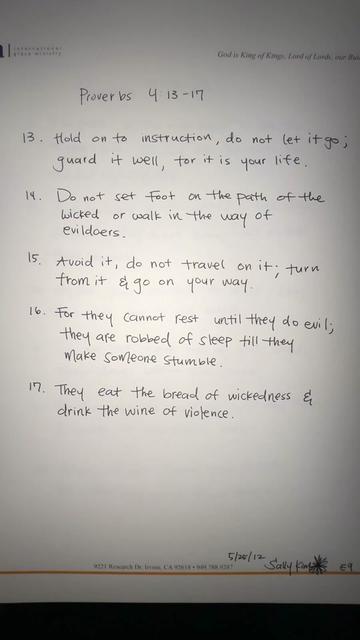 international
grace ministry
God is King of Kings, Lord of Lords, our
Proverbs 4:13-17
13. Hold on to instruction, do not let it go;
guard it well, for it is your life.
14. Do not set foot on the path of the
wicked or walk in the way of
evildoers.
15. Avoid it, do not travel on it; turn
from it & go on your way.
16. For they cannot rest until they do evil;
they are robbed of sleep till they
make someone stumble.
17. They eat the bread of wickedness &
drink the wine of violence.
5/25/12
9221 Research Dr. Irvine, CA 92618 • 949.788.9287
Sally Kim
E9